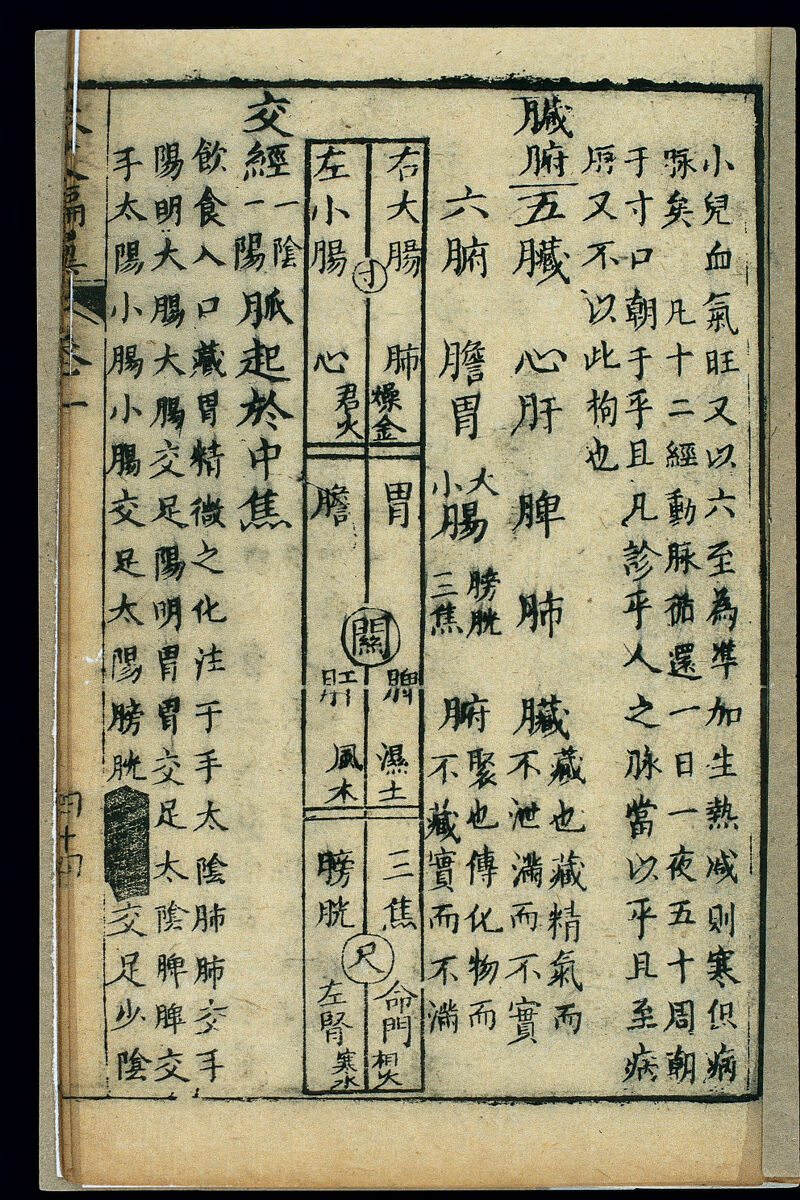 小兒血氣旺又以六至為準加生熱减則寒但病
脉矣 凡十二經動脉循還一日一夜五十周朝
于寸口朝于平旦凡診平人之脉當以平旦至病
又不以此拘也
臟腑 五臟 心肝 脾 肺 臟 藏也藏精氣而
不泄滿而不實
六腑 膽胃 大小腸 膀胱三焦 腑 聚也傳化物而
不藏實而不滿
右大腸 寸 肺 燥金
左小腸 心 君火
胃 關 脾 濕土
膽 肝 風木
三焦 尺 命門 相火
膀胱 左腎 寒水
交經 一陰一陽 脈起於中焦
飲食入口藏胃精微之化注于手太陰肺肺交手
陽明大腸大腸交足陽明胃胃交足太陰脾脾交
手太陽小腸小腸交足太陽膀胱 交足少陰
卷一
四十四